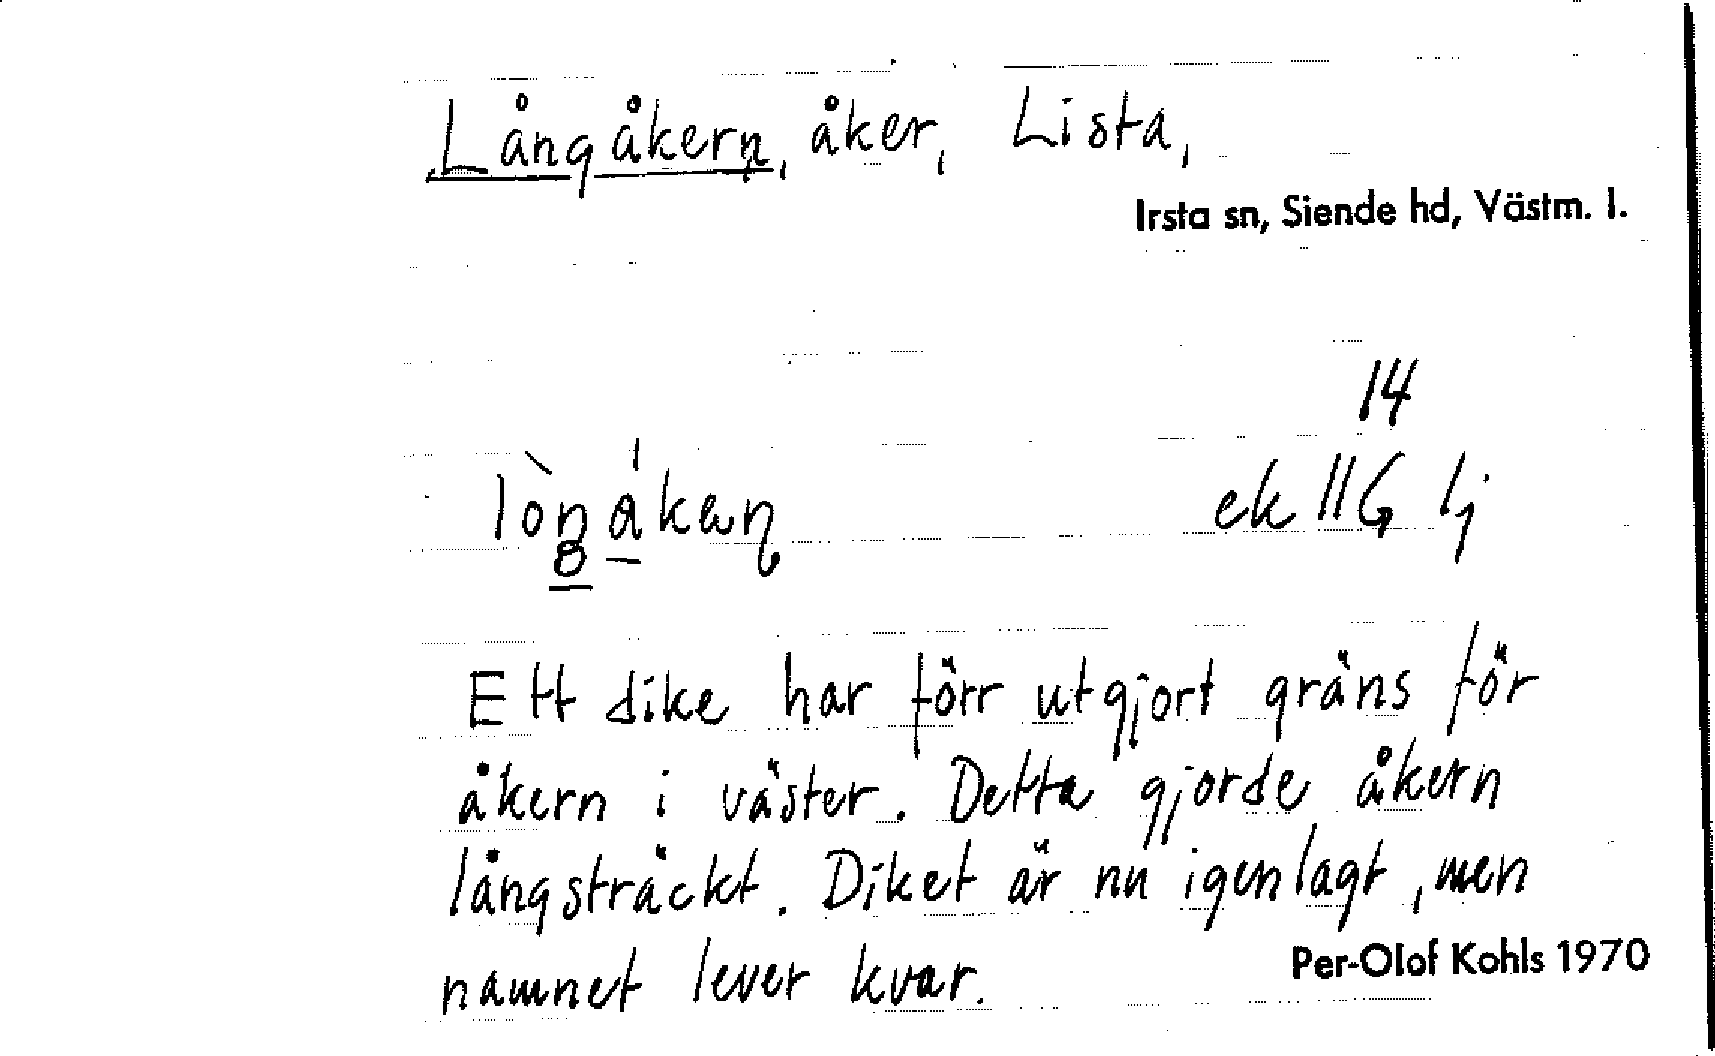 Långåkern, åker, Lista,
Irsta sn, Siende hd, Västm. l.
14
ek 11G lj
Ett dike har förr utgjort gräns för
åkern i väster. Detta gjorde åkern
långsträckt. Diket är nu igenlagt, men
namnet lever kvar.
Per-Olof Kohls 1970